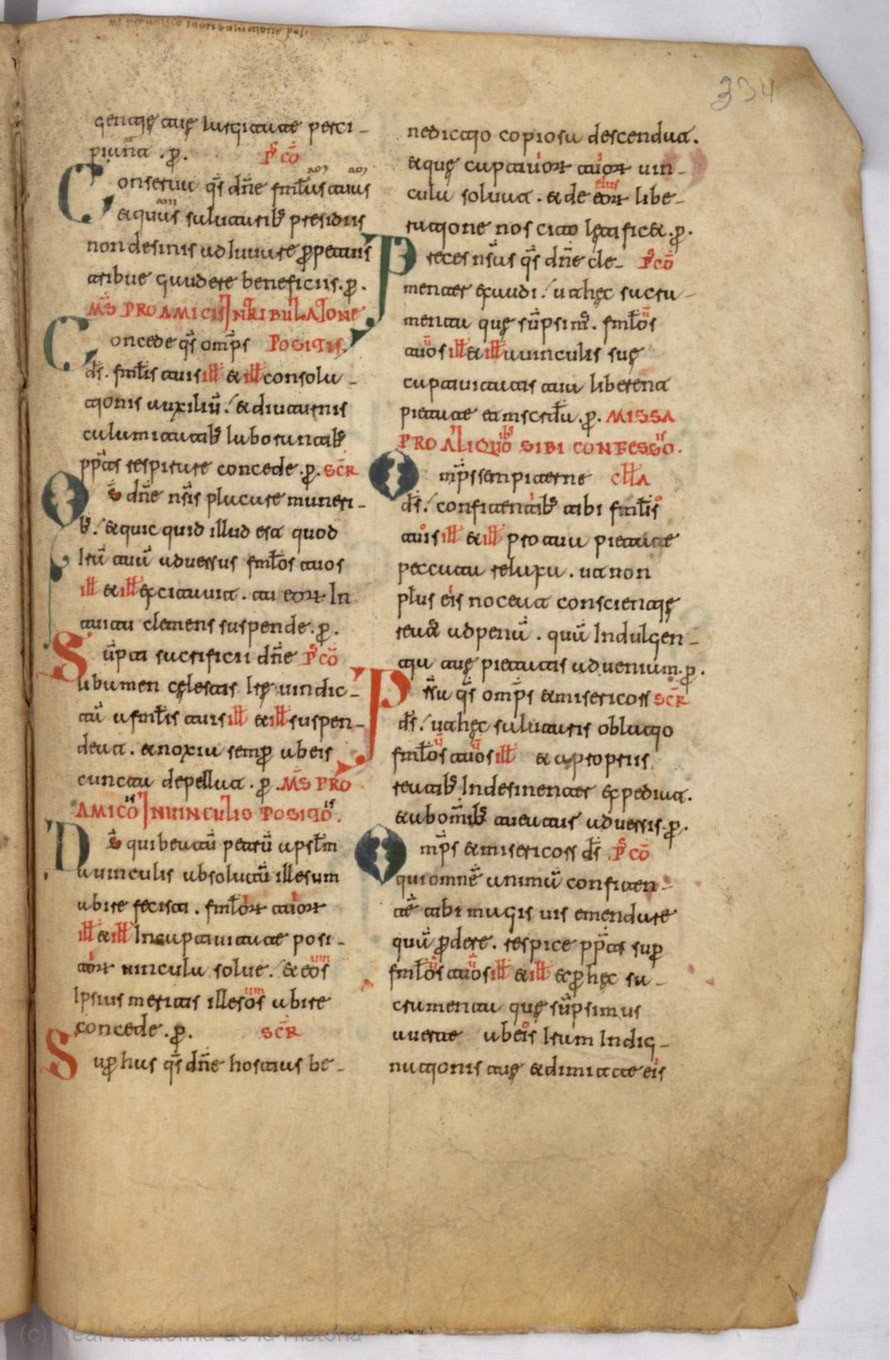 334
gentię tuę largitate perci-
piant. p. P̄ CŌ
Conserua q̄s dn̄e fml̄us tuus
& quos salutarib; presidiis
non desinis adiuuare ꝑpetuis
tribue gaudere beneficiis. p.
MS̄ PRO AMICIS IN TRIBULATIONE
Concede q̄s omp̄s POSITIS.
ds̄. fml̄is tuis ill̄ & ill̄ consola-
tionis auxiliū. & diuturnis
calamitatib; laborantib;
pp̄tius respirare concede. p. SCR̄
Ds̄ dn̄e nr̄is placare muneri-
b;. & quic quid illud est quod
iram tuā aduersus fml̄os tuos
ill̄ & ill̄ excitauit. tu eor̄ in
tuitu clemens suspende. p.
Sūpti sacrificii dn̄e P̄ CŌ
libamen cęlestis irę uindic-
tā a fml̄is tuis ill̄ & ill̄ suspen-
deat. & noxia semꝑ ab eis
cuncta depellat. p. MS̄ PRO
AMICO IN UINCULIS POSITO.
Ds̄ qui beatū petrū apstl̄m
a uinculis absolutū illesum
abire fecisti. fml̄or̄ tuor̄
ill̄ & ill̄ in captiuitate posi-
tor̄ uincula solue. & eos
ipsius meritis illesos abire
concede. p. SCR̄
Suꝑ has q̄s dn̄e hostias be-
nedictio copiosa descendat.
& quę captiuor̄ tuor̄ uin-
cula soluat. & de eor̄ libe-
ratione nos cito lętificet. p.
Preces nr̄as q̄s dn̄e cle- P̄ CŌ
menter exaudi. ut hęc sacra-
menta quę sūpsim̄. fml̄os
tuos ill̄ & ill̄ a uinculis suę
captiuitatis tua liberent
pietate & miscrd̄ia. p. MISSA
PRO ALIQUO SIBI CONFESSO.
Omp̄s sempiterne CLL̄A
ds̄. confitentib; tibi fml̄is
tuis ill̄ & ill̄ pro tua pietate
peccata relaxa. ut non
plus eis noceat conscientię
reatus ad penā. quā indulgen-
tia tuę pietatis ad ueniam. p.
Prsta q̄s omp̄s & misericors SCR̄
ds̄. ut hęc salutaris oblatio
fml̄os tuos ill̄ & a propriis
reatib; indesinenter expediat.
& ab omīb; tueatur aduersis. p.
Omp̄s & misericors ds̄ P̄ CŌ
qui omnē animā confiten-
tē tibi magis uis emendare
quā ꝑdere. respice pp̄tius suꝑ
fml̄os tuos ill̄ & ill̄ & ꝑ hęc sa-
cramenta quę sūpsimus
auerte ab eis iram indig-
nationis tuę & dimitte eis
(c) Real Academia de la Historia